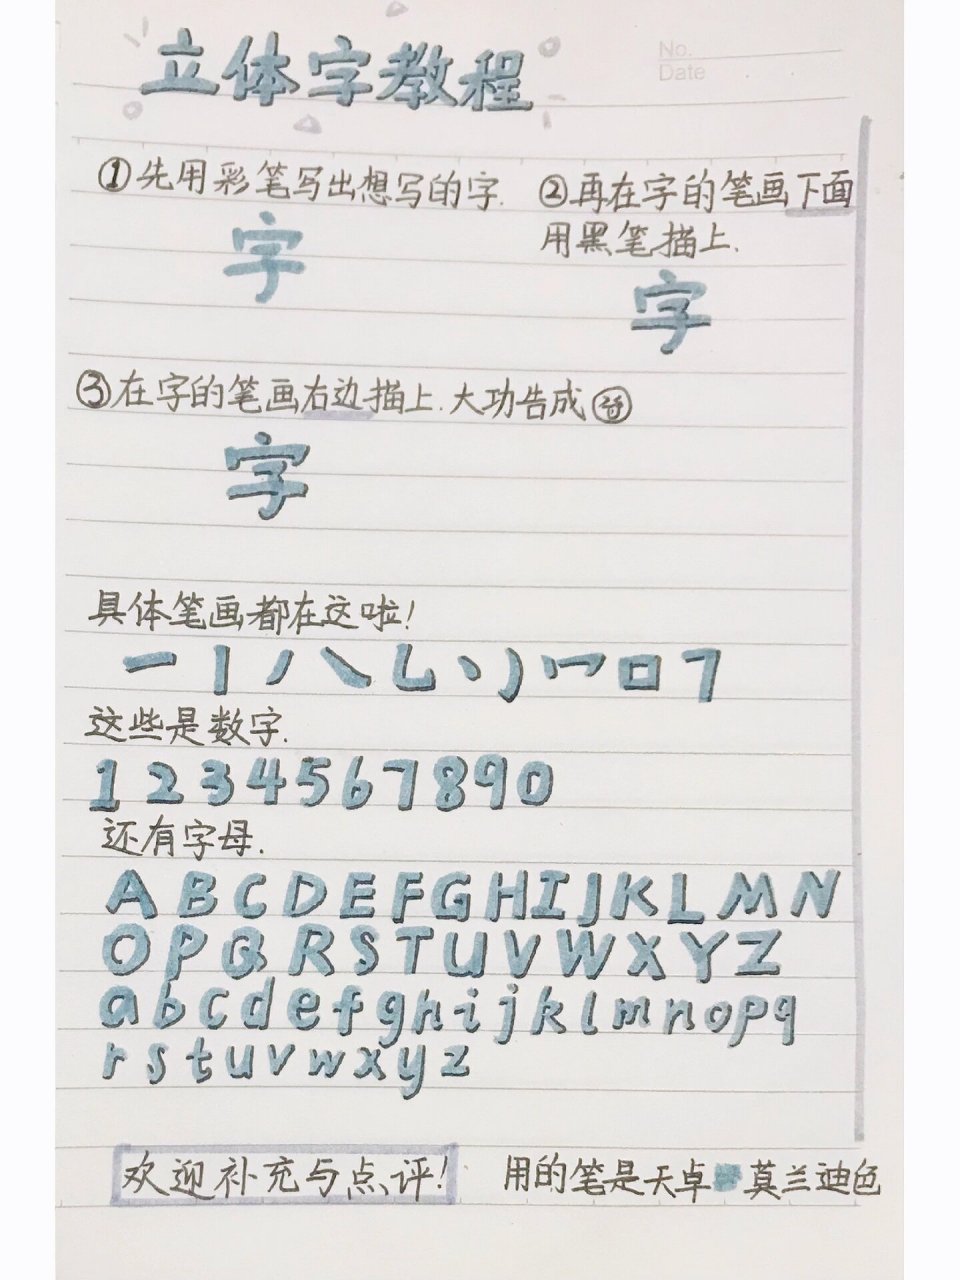 立体字教程
No.
Date
①先用彩笔写出想写的字.
②再在字的笔画下面
用黑笔描上.
字
字
③在字的笔画右边描上.大功告成
字
具体笔画都在这啦!
一丨丿㇏乚丶㇁冖口㇕
这些是数字.
1234567890
还有字母.
ABCDEFGHIJKLMN
OPQRSTUVWXYZ
abcdefghijklmnopq
rstuvwxyz
欢迎补充与点评!
用的笔是天卓 莫兰迪色